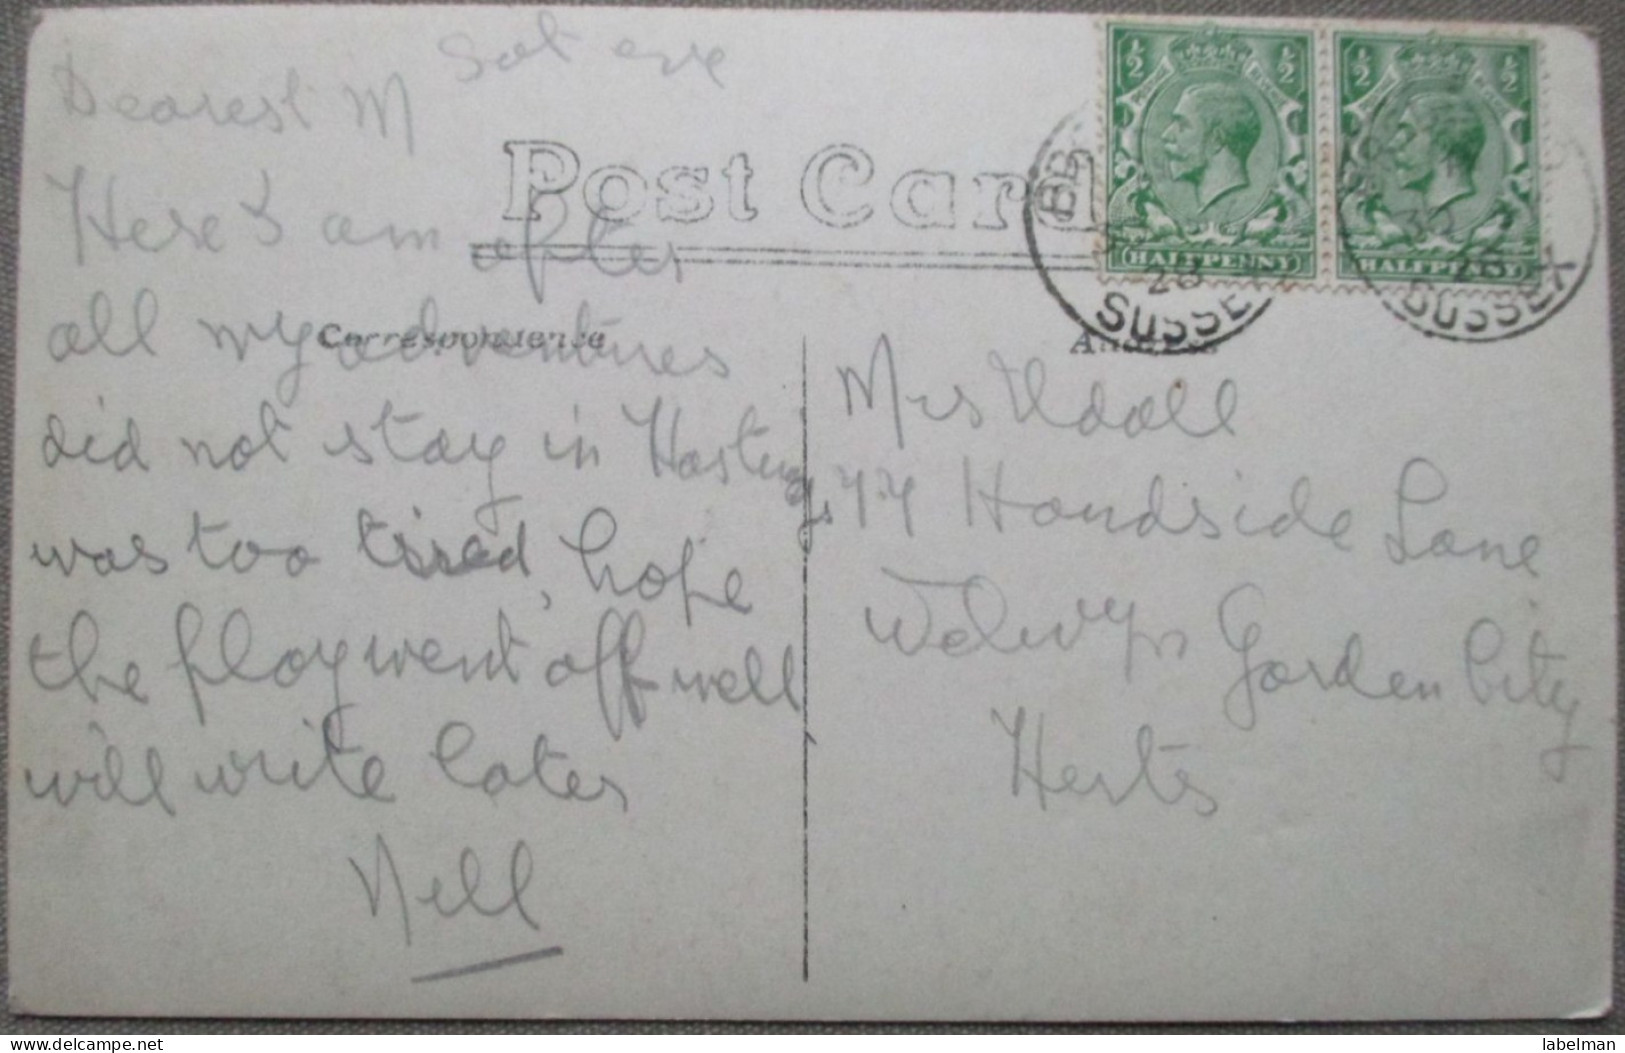 Sat eve
Dearest M
Here I am after
all my adventures
did not stay in Hastings
was too tired, hope
the play went off well
will write later
Nell
Post Card
Correspondence
Mrs Udall
77 Handside Lane
Welwyn Garden City
Herts
½ ½
HALFPENNY
½ ½
HALFPENNY
28
SUSSEX
30
28
SUSSEX
labelman